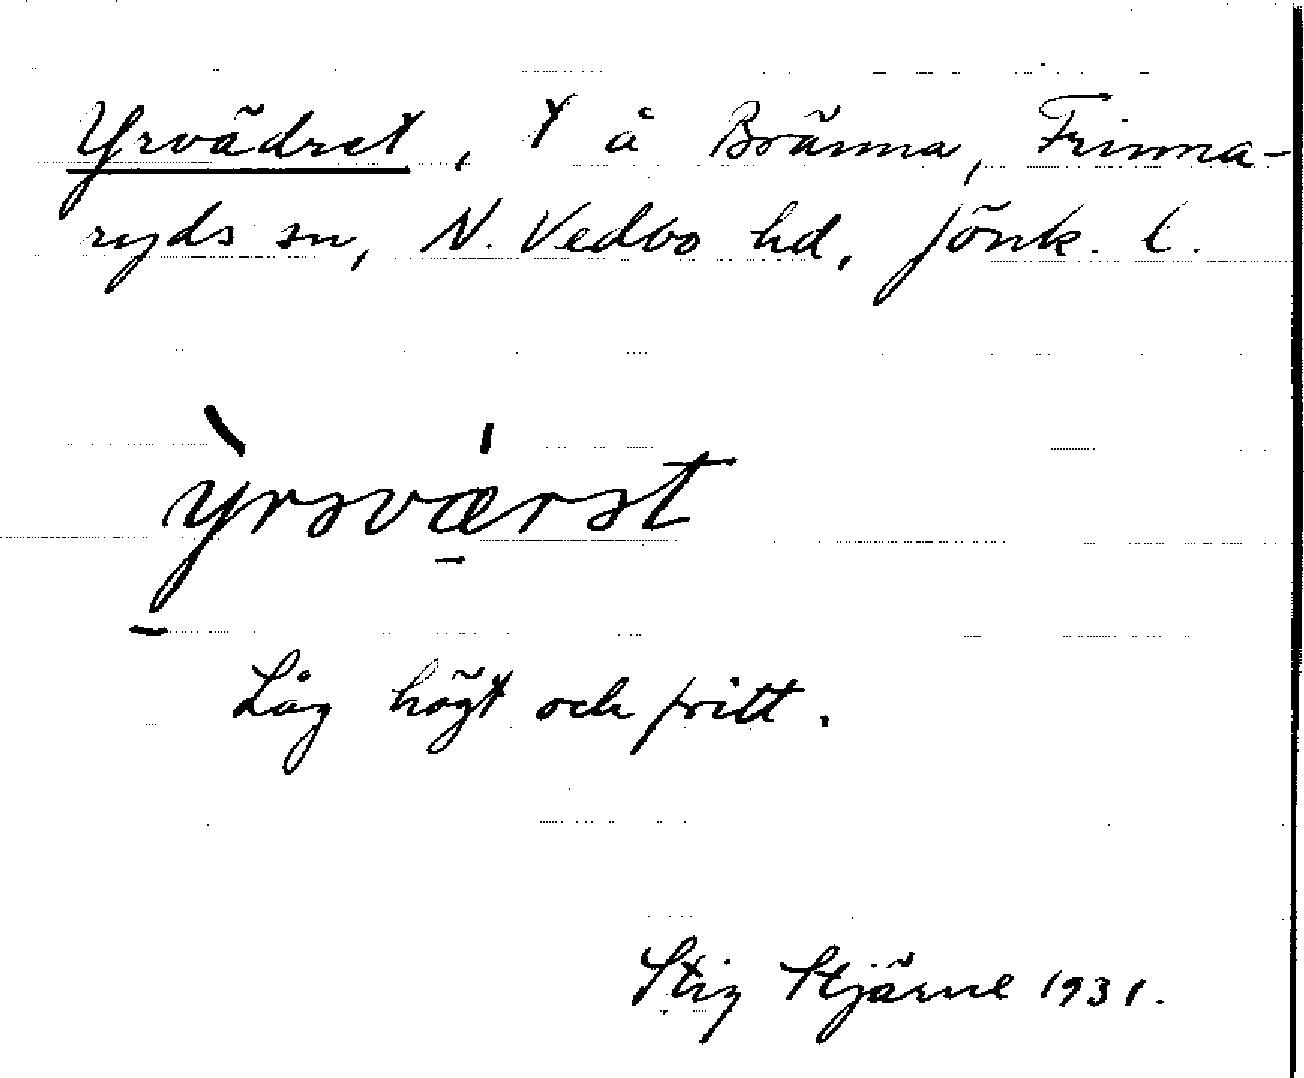 Yrvädret, t å Bränna, Frinna-
ryds sn, N. Vedbo hd, Jönk. l.
ỳrsvæ̍rst
Låg högt och fritt.
Stig Stjärne 1931.